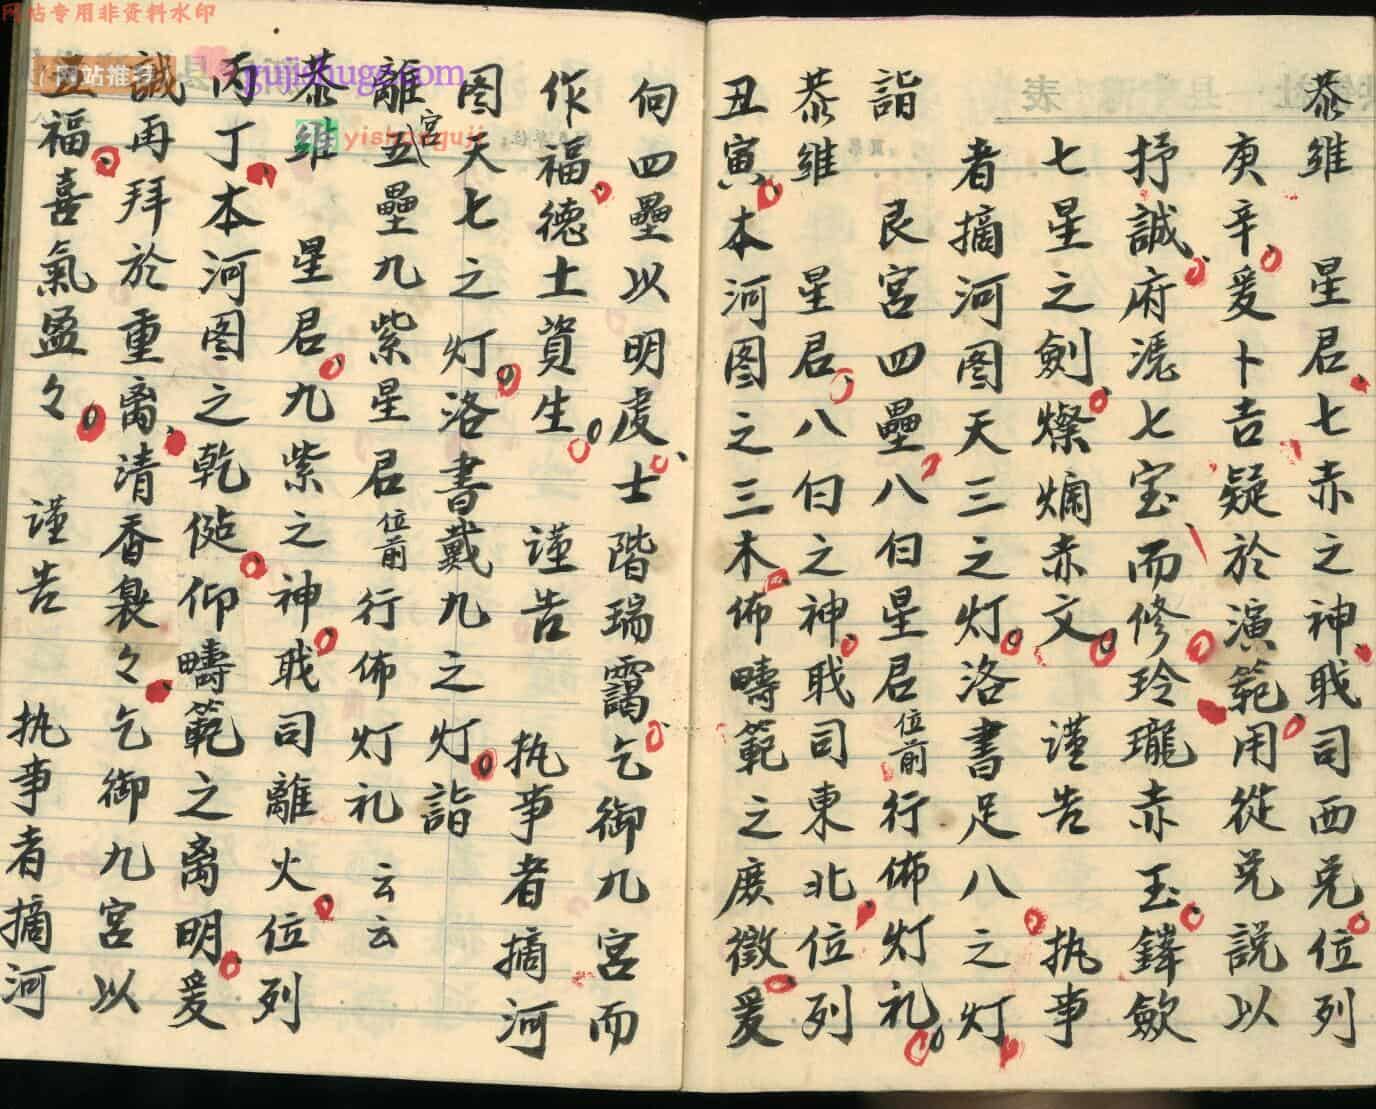 恭維　星君七赤之神戝司西兑位列
庚辛爰卜吉疑於演範用從兑説以
抒誠府慿七宝而修玲瓏赤玉鐸歛
七星之劍燦爛赤文　謹告　执事
者摘河图天三之灯洛書足八之灯
詣　艮宮四壘八白星君位前行佈灯礼
恭維　星君八白之神戝司東北位列
丑寅本河图之三木佈疇範之庶徵爰
伺四壘以明虔士階瑞靄乞御九宮而
作福德土資生　謹告　执事者摘河
图天七之灯洛書戴九之灯詣
離宮五壘九紫星君位前行佈灯礼云云
恭維　星君九紫之神戝司離火位列
丙丁本河图之乾仰疇範之离明爰
誠再拜於重离清香裊々乞御九宮以
五福喜氣盈々　谨告　执事者摘河
网站专用非资料水印
网站推荐
gujishuge.com
yishanguji
表